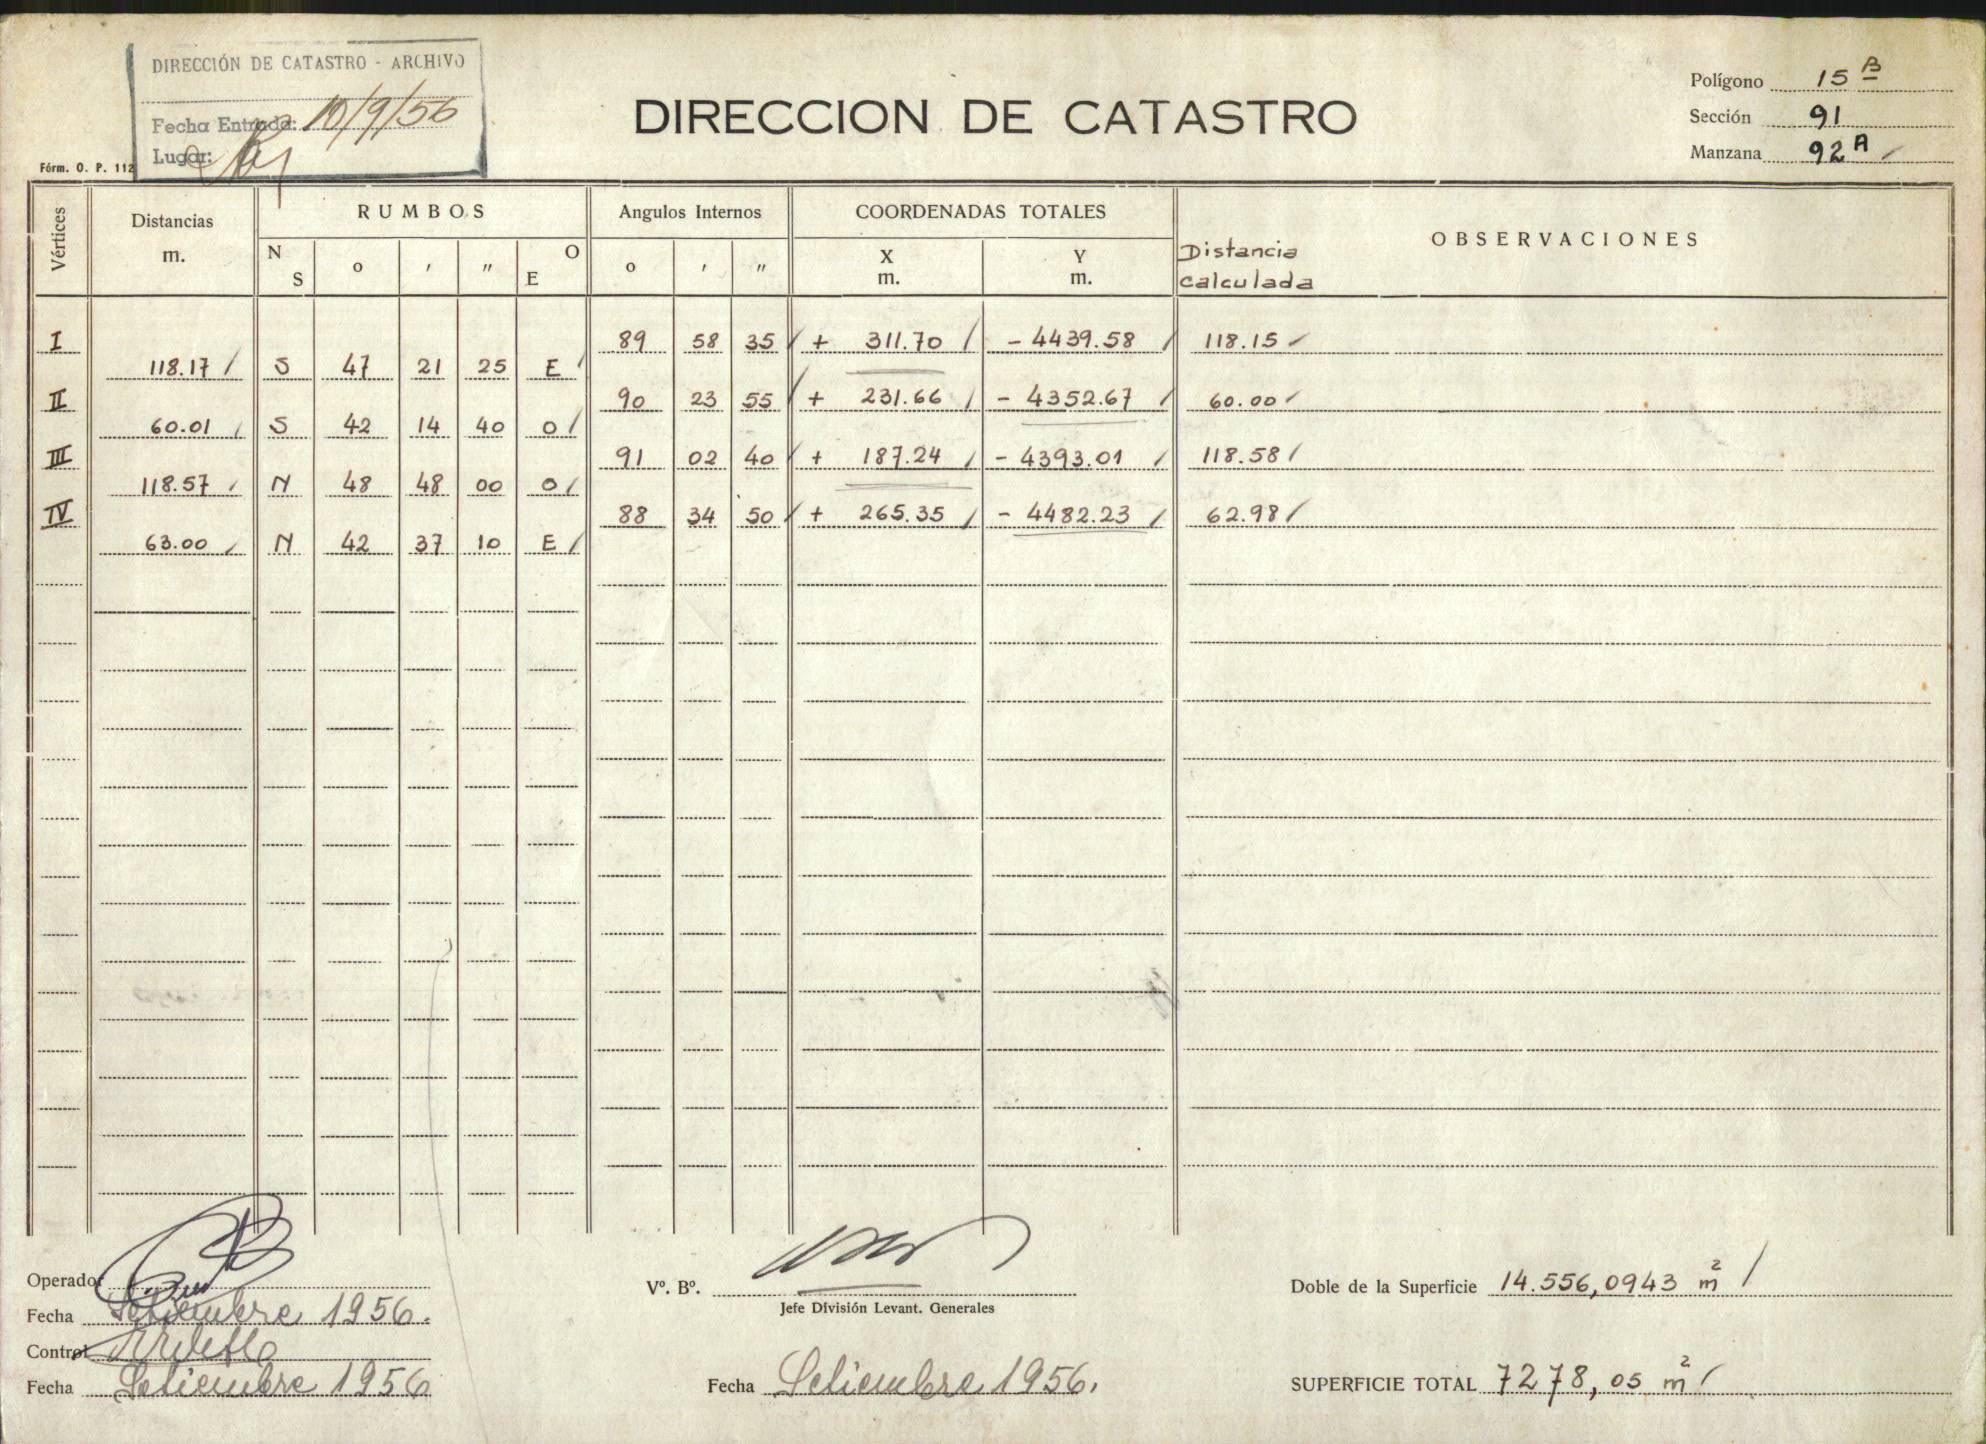 DIRECCIÓN DE CATASTRO - ARCHIVO
Fecha Entrada: 10/9/56
Lugar:
Fórm. O. P. 112
DIRECCION DE CATASTRO
Polígono 15 B
Sección 91
Manzana 92 A
Vértices
Distancias
m.
RUMBOS
N S
o
'
"
O E
Angulos Internos
o
'
"
COORDENADAS TOTALES
X
m.
Y
m.
Distancia
calculada
OBSERVACIONES
I 89 58 35 + 311.70 - 4439.58 118.15
118.17 S 47 21 25 E
II 90 23 55 + 231.66 - 4352.67 60.00
60.01 S 42 14 40 O
III 91 02 40 + 187.24 - 4393.01 118.58
118.57 N 48 48 00 O
IV 88 34 50 + 265.35 - 4482.23 62.98
63.00 N 42 37 10 E
Operador
Fecha Setiembre 1956.
Control
Fecha Setiembre 1956
Vº. Bº.
Jefe División Levant. Generales
Fecha Setiembre 1956.
Doble de la Superficie 14.556,0943 m²
SUPERFICIE TOTAL 7278,05 m²